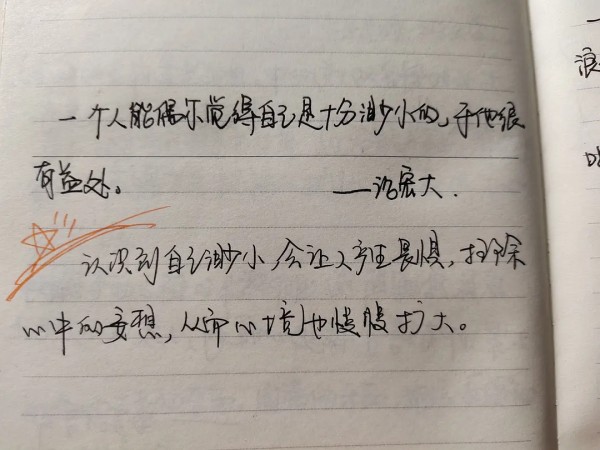 一个人能偶尔觉得自己是十分渺小的，于他很
有益处。
——论宏大.
认识到自己渺小，会让人产生畏惧，扫除
心中的妄想，从而心境也慢慢扩大。
一
浪